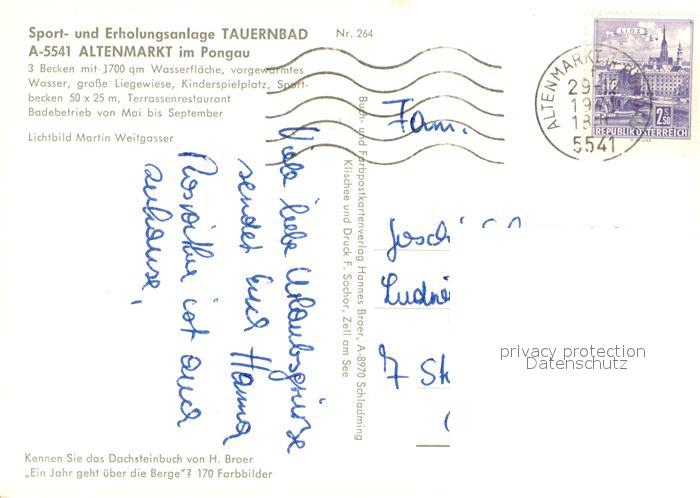 Sport- und Erholungsanlage TAUERNBAD Nr. 264
A-5541 ALTENMARKT im Pongau
3 Becken mit 1700 qm Wasserfläche, vorgewärmtes
Wasser, große Liegewiese, Kinderspielplatz, Sport-
becken 50 x 25 m, Terrassenrestaurant
Badebetrieb von Mai bis September
Lichtbild Martin Weitgasser
Viele liebe Urlaubsgrüße
sendet Euch Hanna
Roswitha ist auch
zuhause,
Kennen Sie das Dachsteinbuch von H. Broer
„Ein Jahr geht über die Berge"? 170 Farbbilder
Buch- und Farbpostkartenverlag Hannes Broer, A-8970 Schladming
Klischee und Druck F. Sochor, Zell am See
LINZ
2.50
REPUBLIK ÖSTERREICH
ALTENMARKT
29-
5541
Fam.
Joschi
7 St
privacy protection
Datenschutz